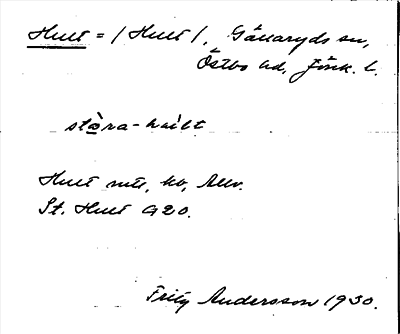 Hult = / Hult /, Gällaryds sn,
Östbo hd, Jönk. l.
stòra-hult
Hult mtl, by, Allv.
St. Hult G20.
Fritz Andersson 1930.